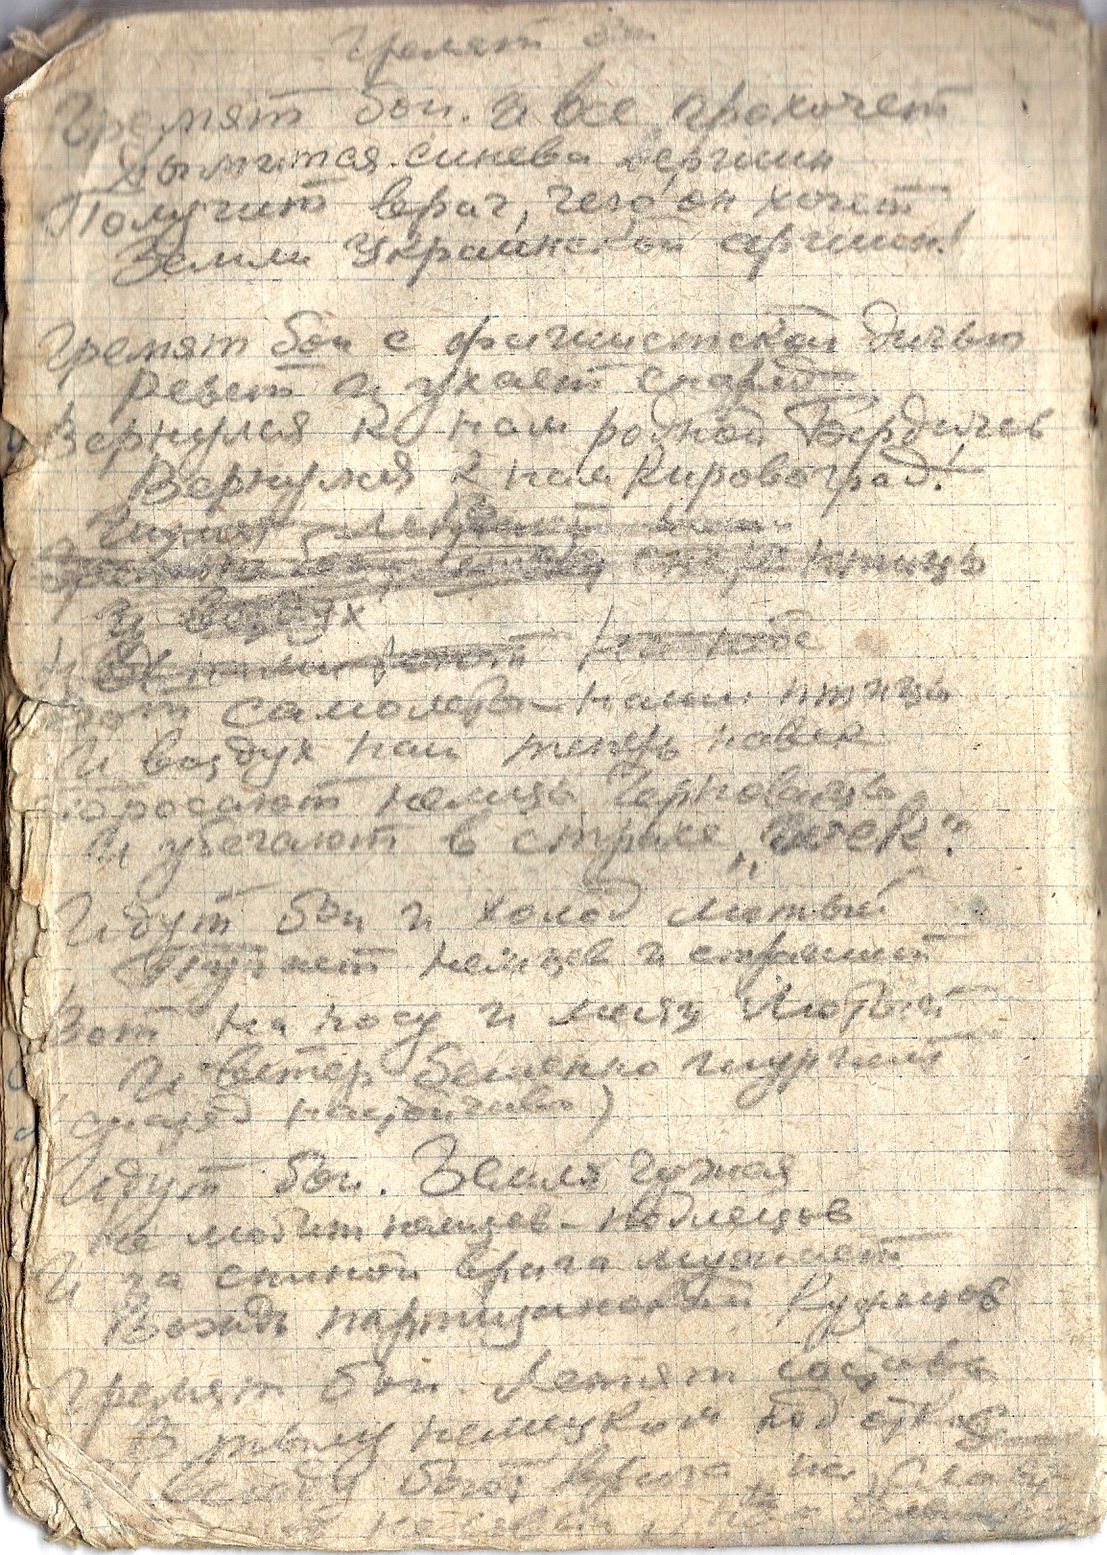 Гремят бои
Гремят бои. И все грохочет
Дымится синева вершин
Получит враг, чего он хочет
Земли украинской аршин!
Гремят бои с фашистской дичью
Ревет и ухает снаряд
Вернулся к нам родной Бердичев
Вернулся к нам Кировоград.
И воздух
И
Вот самолеты – наши птицы
И воздух наш теперь навек
Бросают немцы Черновицы
И убегают в страхе
Идут бои и холод лютый
Пугает немцев и страшит
Вот на носу и месяц Лютый
И ветер бешенно шуршит
Идут бои. Земля чужая
Не любит немцев – подлецов
И за спиной врага мужает
Вождь партизанский Кузнецов
Гремят бои. Летят составы
В тылу немецком под откос
И всюду бьют врага на славу